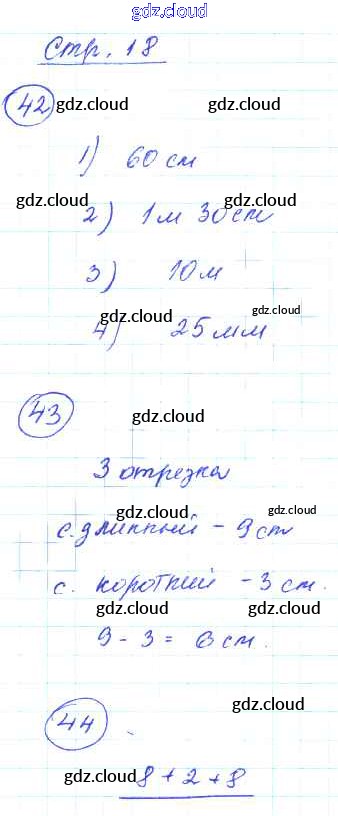 gdz.cloud
Стр. 18
42 gdz.cloud
1) 60 см
gdz.cloud
2) 1 м 30 см
gdz.cloud
3) 10 м
gdz.cloud gdz.cloud
4) 25 мм
43 gdz.cloud
3 отрезка
gdz.cloud gdz.cloud
с. длинный - 9 см
с. короткий - 3 см.
gdz.cloud gdz.cloud
9 - 3 = 6 см.
44 gdz.cloud
gdz.cloud 8 + 2 + 8